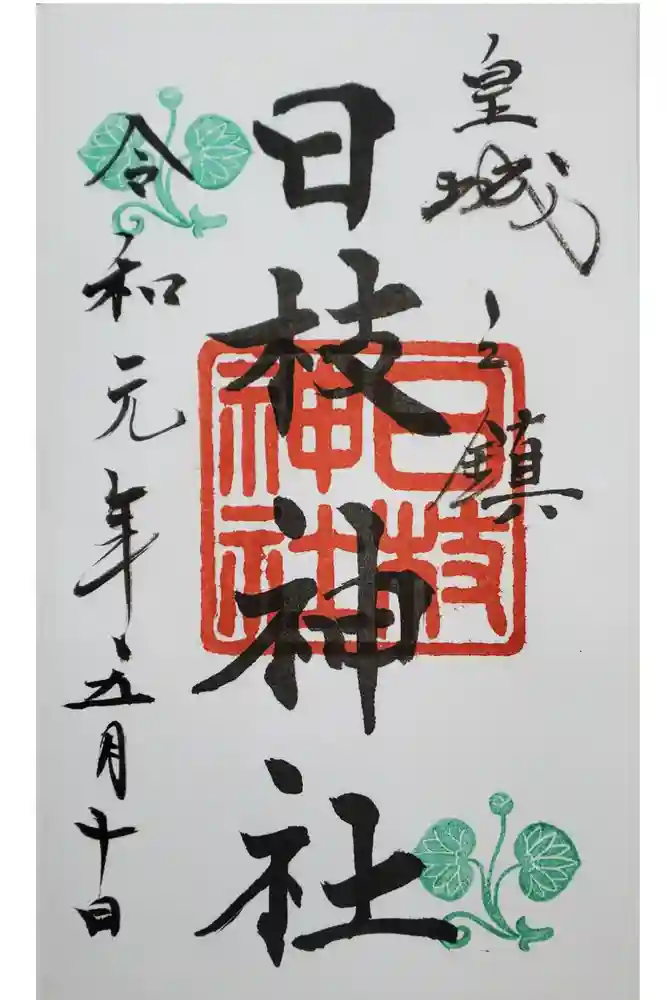 皇城之鎮
日枝神社
日枝神社
令和元年五月十日